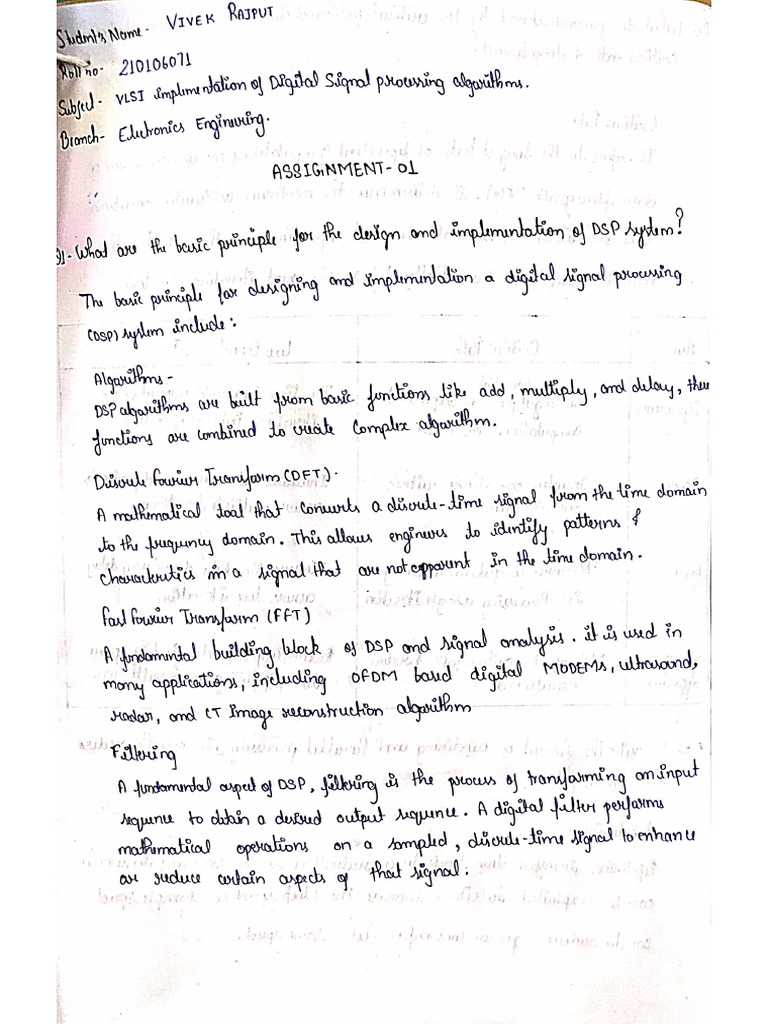 Student's Name - VIVEK RAJPUT
Roll no - 210106071
Subject - VLSI implementation of Digital Signal processing algorithms.
Branch - Electronics Engineering.
ASSIGNMENT-01
Q1 - What are the basic principle for the design and implementation of DSP system?
The basic principle for designing and implementation a digital signal processing
(DSP) system include:
Algorithms -
DSP algorithms are built from basic functions like add, multiply, and delay, these
functions are combined to create complex algorithm.
Discrete Fourier Transform (DFT).
A mathematical tool that converts a discrete-time signal from the time domain
to the frequency domain. This allows engineers to identify patterns &
characteristics in a signal that are not apparent in the time domain.
Fast Fourier Transform (FFT)
A fundamental building block, of DSP and signal analysis. it is used in
many applications, including OFDM based digital MODEMs, ultrasound,
radar, and CT Image reconstruction algorithm
Filtering
A fundamental aspect of DSP, filtering is the process of transforming an input
sequence to obtain a desired output sequence. A digital filter performs
mathematical operations on a sampled, discrete-time signal to enhance
or reduce certain aspects of that signal.